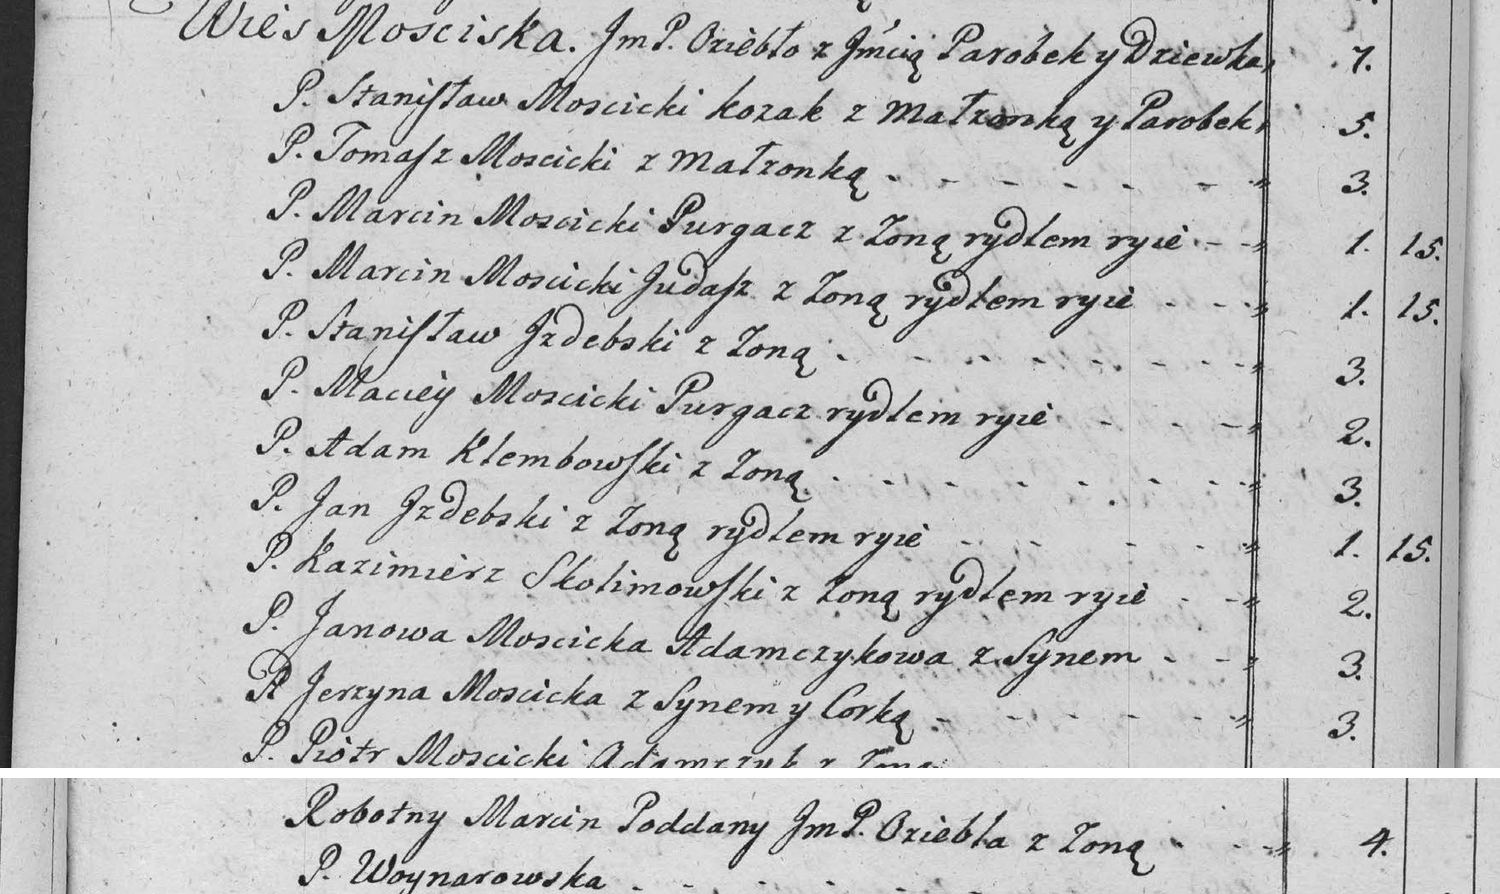 Wieś Mosciska. JmP. Oziębło z Jmcią Parobek y Dziewka „ 7.
P. Stanisław Moscicki kozak z Małzonką y Parobek „ 5.
P. Tomasz Moscicki z Małzonką . - - - - - „ 3.
P. Marcin Moscicki Purgacz z Zoną rydlem ryie - - „ 1. 15.
P. Marcin Moscicki Judasz z Zoną rydlem ryie - - - „ 1. 15.
P. Stanisław Jzdebski z Zoną . - - - - - - - „ 3.
P. Maciey Moscicki Purgacz rydlem ryie - - - „ 2.
P. Adam Klembowski z Zoną . - - - - - - - „ 3.
P. Jan Jzdebski z Zoną rydlem ryie - - - - - „ 1. 15.
P. Kazimierz Skolimowski z Zoną rydlem ryie - - „ 2.
P. Janowa Moscicka Adamczykowa z Synem - - „ 3.
P. Jerzyna Moscicka z Synem y Corką - - - - - „ 3.
P. Piotr Moscicki Adamczyk z Zoną
Robotny Marcin Poddany JmP. Oziębła z Zoną - - - „ 4.
P. Woynarowska . - - - - -